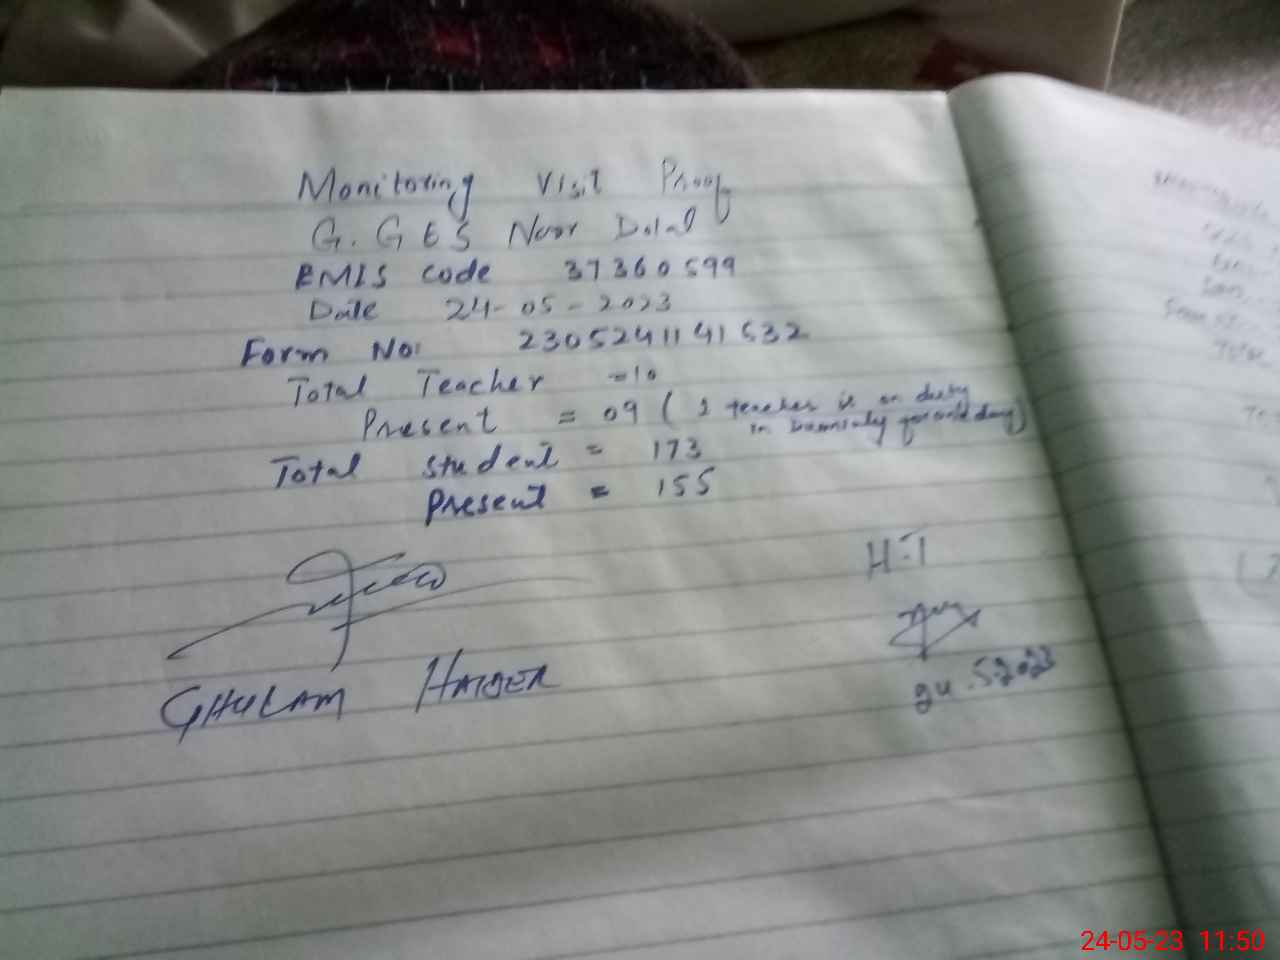 Monitoring Visit Proof
G.GES Noor Dolal
EMIS code 37360599
Date 24-05-2023
Form No: 2305241141532
Total Teacher =10
Present = 09 ( 1 teacher is on duty
in
Total student = 173
Present = 155
H.T
GHULAM HAIDER
24.5.2023
24-05-23 11:50